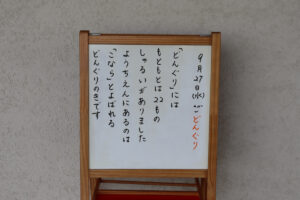 9月27日(水) ごご どんぐり
「どんぐり」には
もともとは22もの
しゅるいがありました
ようちえんにあるのは
「こなら」とよばれる
どんぐりのきです